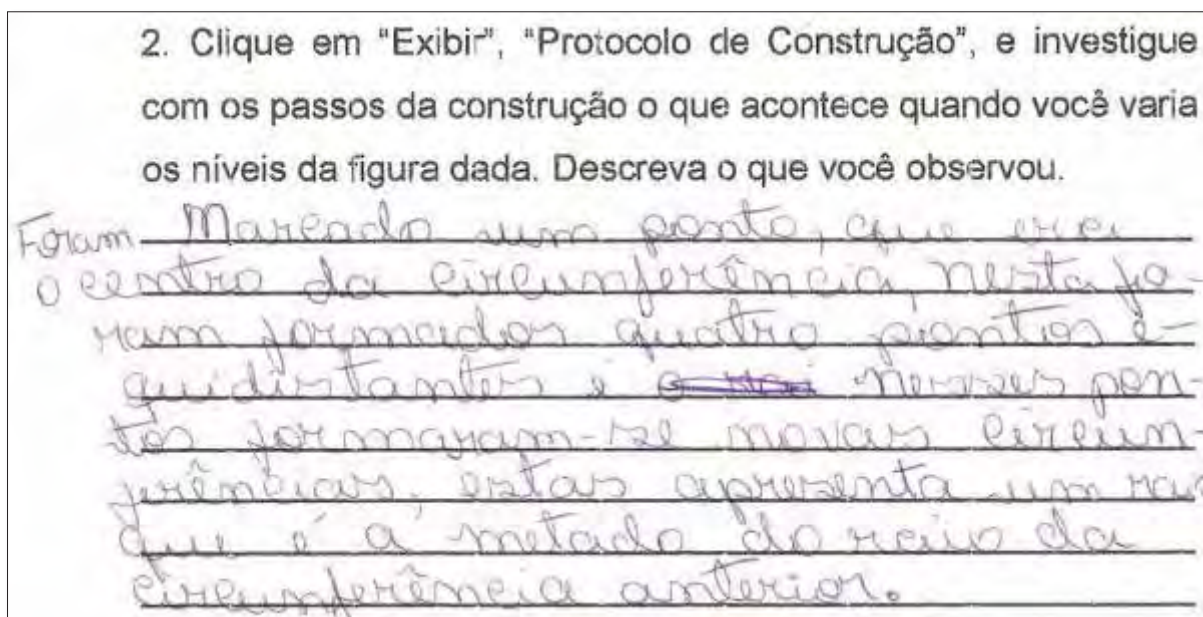 2. Clique em “Exibir”, “Protocolo de Construção”, e investigue
com os passos da construção o que acontece quando você varia
os níveis da figura dada. Descreva o que você observou.
Foram Marcado um ponto, que era
o centro da circunferência, nesta fo-
ram formados quatro pontos e-
quidistantes e nesses pon-
tos formaram-se novas circun-
ferências, estas apresenta um raio
que é a metade do raio da
circunferência anterior.